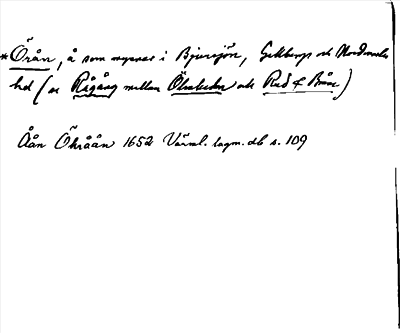 *Örån, å som mynnar i Bjursjön, Gåsborgs och Nordmarks
hd (se Rågång mellan Ölmhedn och Rud f Brån)
Åån Öhråån 1652 Värml. lagm.db s. 109